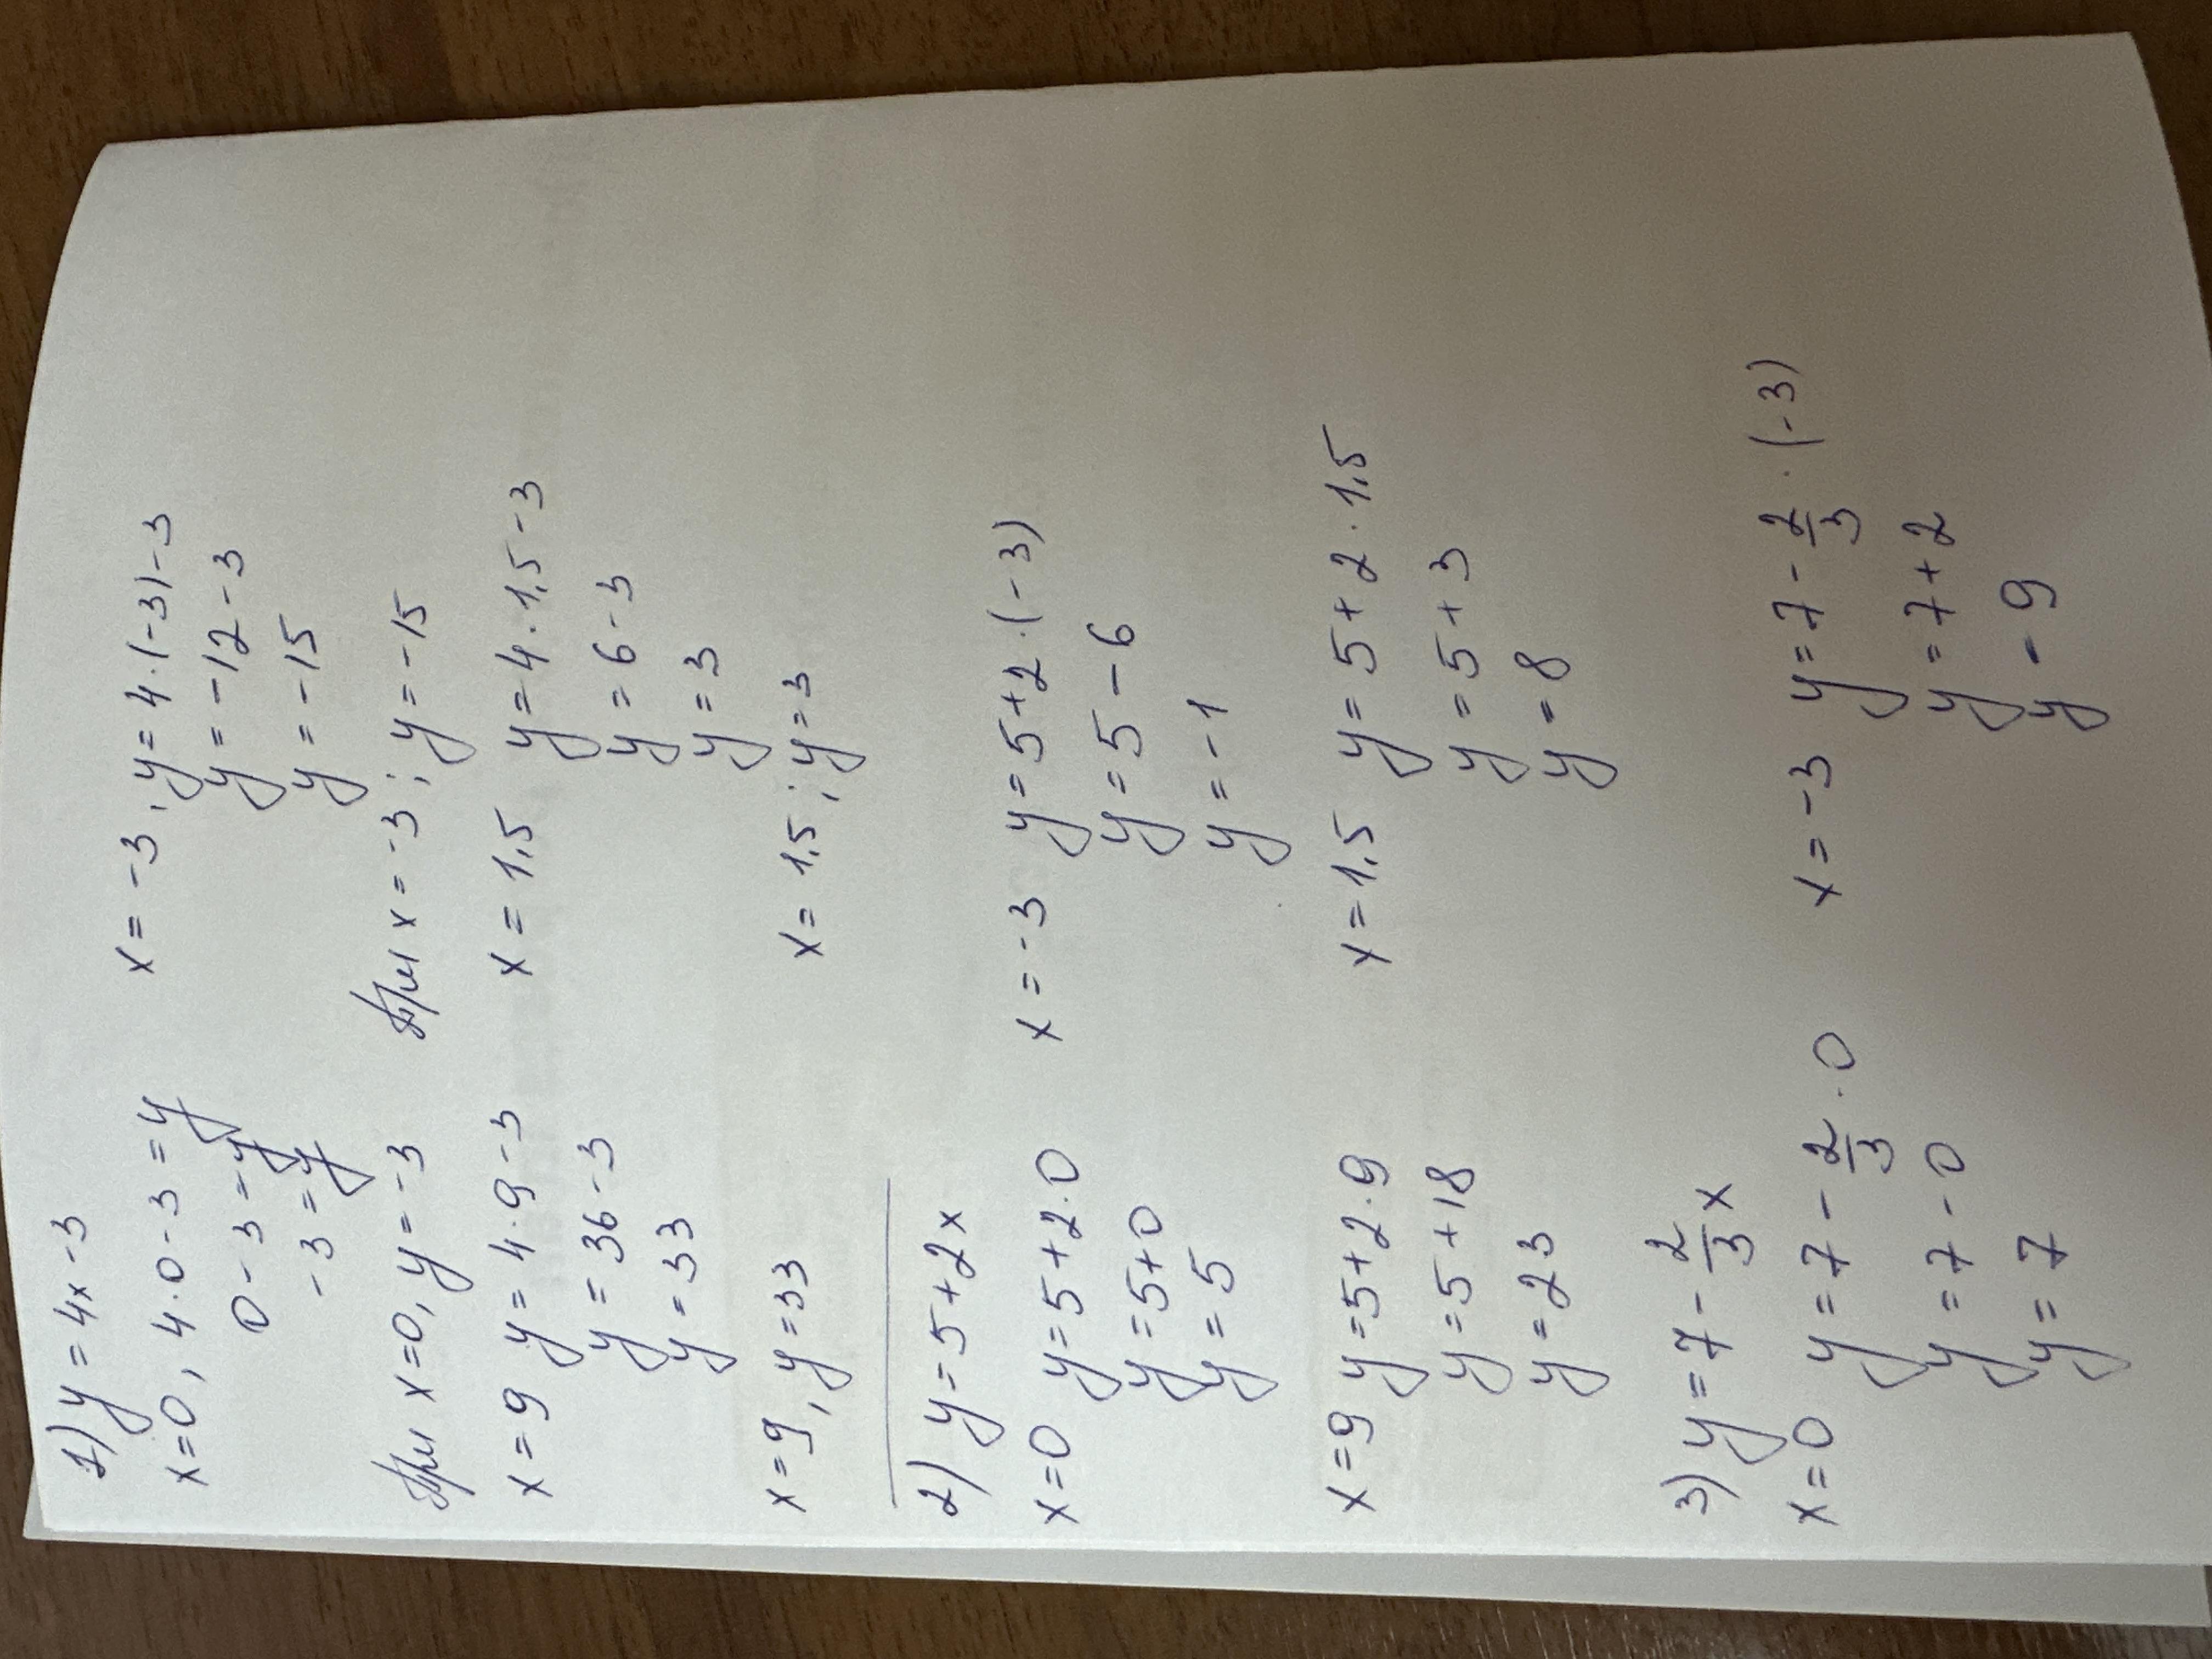 1) y = 4x - 3
x=0, 4·0-3=y
0-3=y
-3=y
При x=0, y=-3
x = -3, y=4·(-3)-3
y = -12-3
y = -15
При x=-3; y=-15
x=9 y=4·9-3
y=36-3
y=33
x=9, y=33
x=1,5 y=4·1,5-3
y=6-3
y=3
x=1,5; y=3
2) y=5+2x
x=0 y=5+2·0
y=5+0
y=5
x=-3 y=5+2·(-3)
y=5-6
y=-1
x=9 y=5+2·9
y=5+18
y=23
x=1,5 y=5+2·1,5
y=5+3
y=8
3) y=7-2/3x
x=0 y=7-2/3·0
y=7-0
y=7
x=-3 y=7-2/3·(-3)
y=7+2
y=9